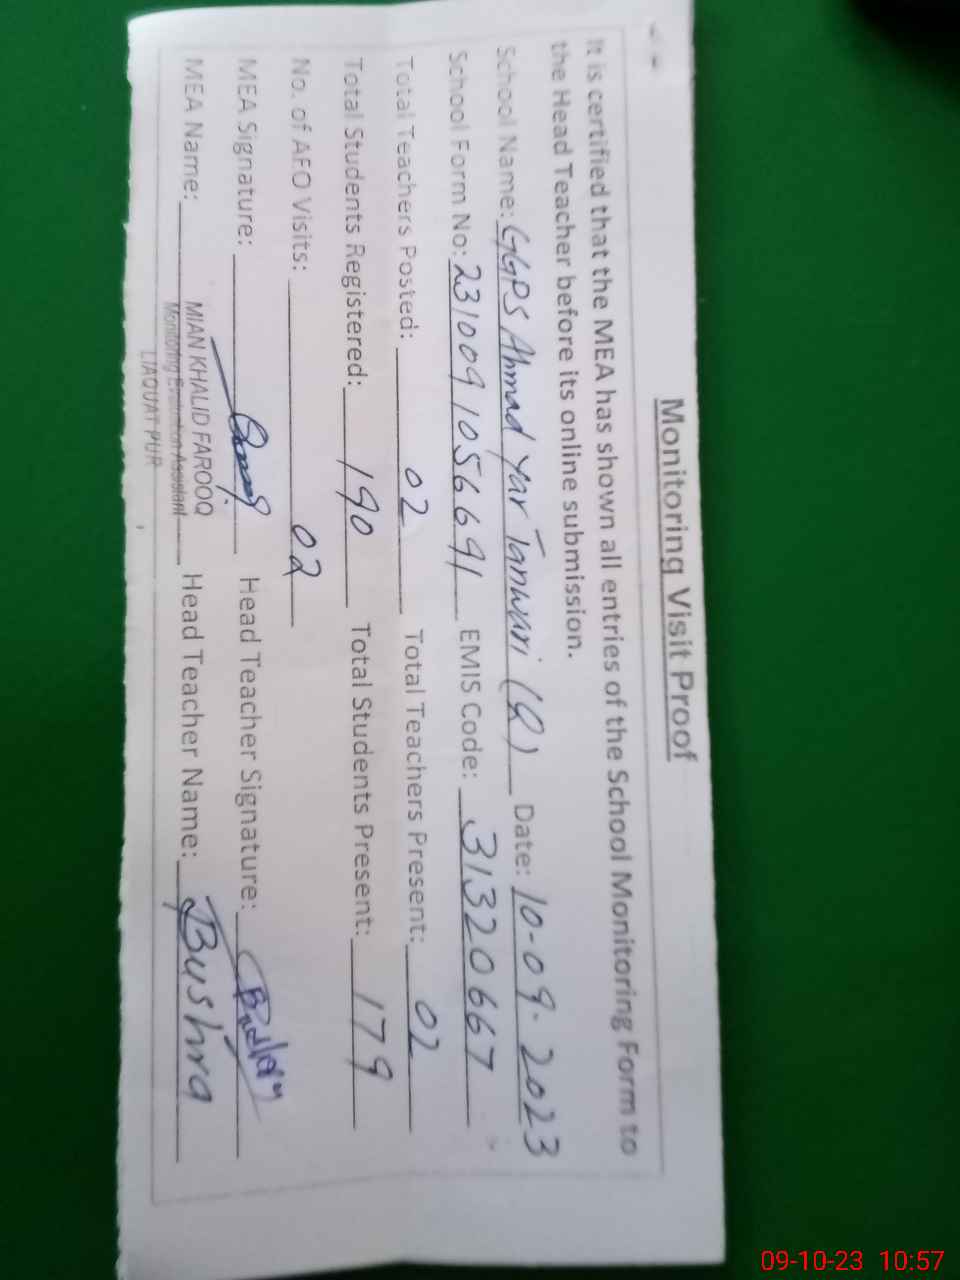 Monitoring Visit Proof
It is certified that the MEA has shown all entries of the School Monitoring Form to
the Head Teacher before its online submission.
School Name: GGPS Ahmad Yar Tanwari (Q) Date: 10-09-2023
School Form No: 2310091056691 EMIS Code: 31320667
Total Teachers Posted: 02 Total Teachers Present: 02
Total Students Registered: 190 Total Students Present: 179
No. of AEO Visits: 02
MEA Signature: Head Teacher Signature:
MEA Name: MIAN KHALID FAROOQ Head Teacher Name: Bushra
Monitoring Evaluation Assistant
LIAQUAT PUR
09-10-23 10:57